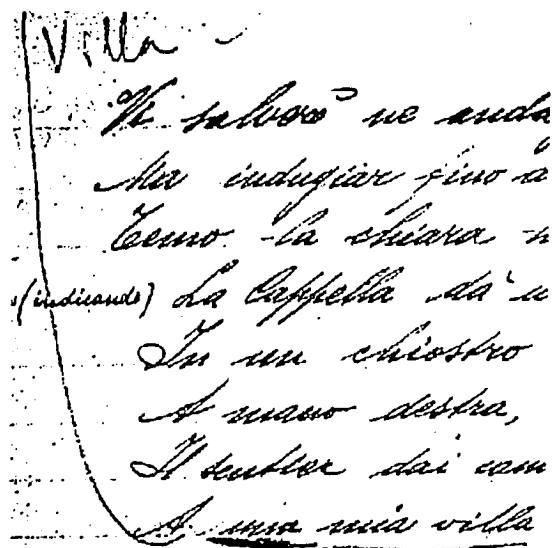 Villa
Vi salverò ne anda
Ma indugiar fino a
Temo - la chiara n
(indicando) La Cappella dà u
In un chiostro
A mano destra,
Il sentier dai cam
A una mia villa